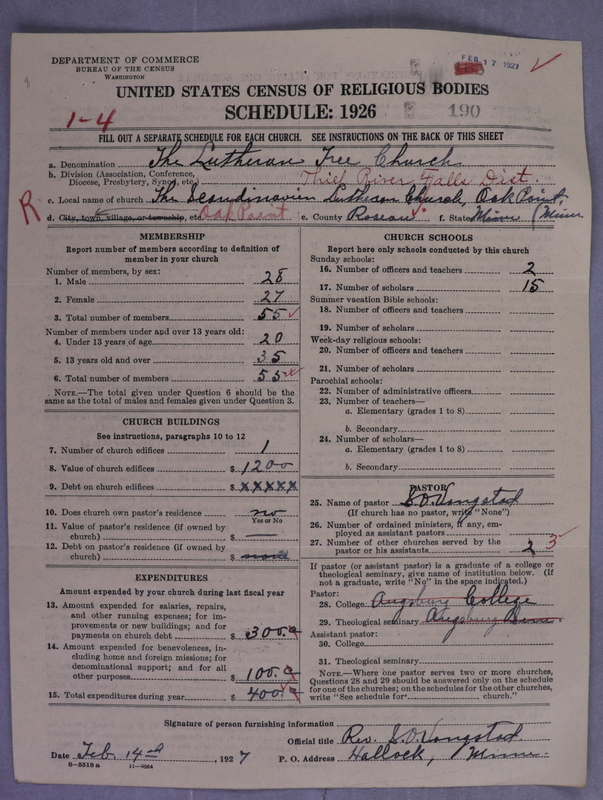 DEPARTMENT OF COMMERCE
BUREAU OF THE CENSUS
WASHINGTON
FEB 17 1927
UNITED STATES CENSUS OF RELIGIOUS BODIES
SCHEDULE: 1926
190
1-4
FILL OUT A SEPARATE SCHEDULE FOR EACH CHURCH. SEE INSTRUCTIONS ON THE BACK OF THIS SHEET
a. Denomination The Lutheran Free Church
b. Division (Association, Conference, Diocese, Presbytery, Synod, etc.) Thief River Falls Dist.
R
c. Local name of church The Scandinavien Lutheran Church, Oak Point,
d. City, town, village, or township, etc. Oak Point e. County Roseau f. State Minn (Minn
MEMBERSHIP
Report number of members according to definition of member in your church
Number of members, by sex:
1. Male 28
2. Female 27
3. Total number of members 55
Number of members under and over 13 years old:
4. Under 13 years of age 20
5. 13 years old and over 35
6. Total number of members 55
NOTE.—The total given under Question 6 should be the same as the total of males and females given under Question 3.
CHURCH BUILDINGS
See instructions, paragraphs 10 to 12
7. Number of church edifices 1
8. Value of church edifices $ 1200
9. Debt on church edifices $ xxxxx
10. Does church own pastor's residence? no
Yes or No
11. Value of pastor's residence (if owned by church) $ —
12. Debt on pastor's residence (if owned by church) $ none
EXPENDITURES
Amount expended by your church during last fiscal year
13. Amount expended for salaries, repairs, and other running expenses; for improvements or new buildings; and for payments on church debt $ 300.
14. Amount expended for benevolences, including home and foreign missions; for denominational support; and for all other purposes $ 100.
15. Total expenditures during year $ 400.
CHURCH SCHOOLS
Report here only schools conducted by this church
Sunday schools:
16. Number of officers and teachers 2
17. Number of scholars 15
Summer vacation Bible schools:
18. Number of officers and teachers
19. Number of scholars
Week-day religious schools:
20. Number of officers and teachers
21. Number of scholars
Parochial schools:
22. Number of administrative officers
23. Number of teachers—
a. Elementary (grades 1 to 8)
b. Secondary
24. Number of scholars—
a. Elementary (grades 1 to 8)
b. Secondary
PASTOR
25. Name of pastor S.O. Vangstad
(If church has no pastor, write "None")
26. Number of ordained ministers, if any, employed as assistant pastors
27. Number of other churches served by the pastor or his assistants 2 3
If pastor (or assistant pastor) is a graduate of a college or theological seminary, give name of institution below. (If not a graduate, write "No" in the space indicated.)
Pastor:
28. College Augsburg College
29. Theological seminary Augsburg Sem.
Assistant pastor:
30. College
31. Theological seminary
NOTE.—Where one pastor serves two or more churches, Questions 28 and 29 should be answered only on the schedule for one of the churches; on the schedules for the other churches, write "See schedule for church."
Signature of person furnishing information
Official title Rev. S.O. Vangstad.
Date Feb. 14th, 1927 P. O. Address Hallock, Minn.
8—5518 a 11—9264